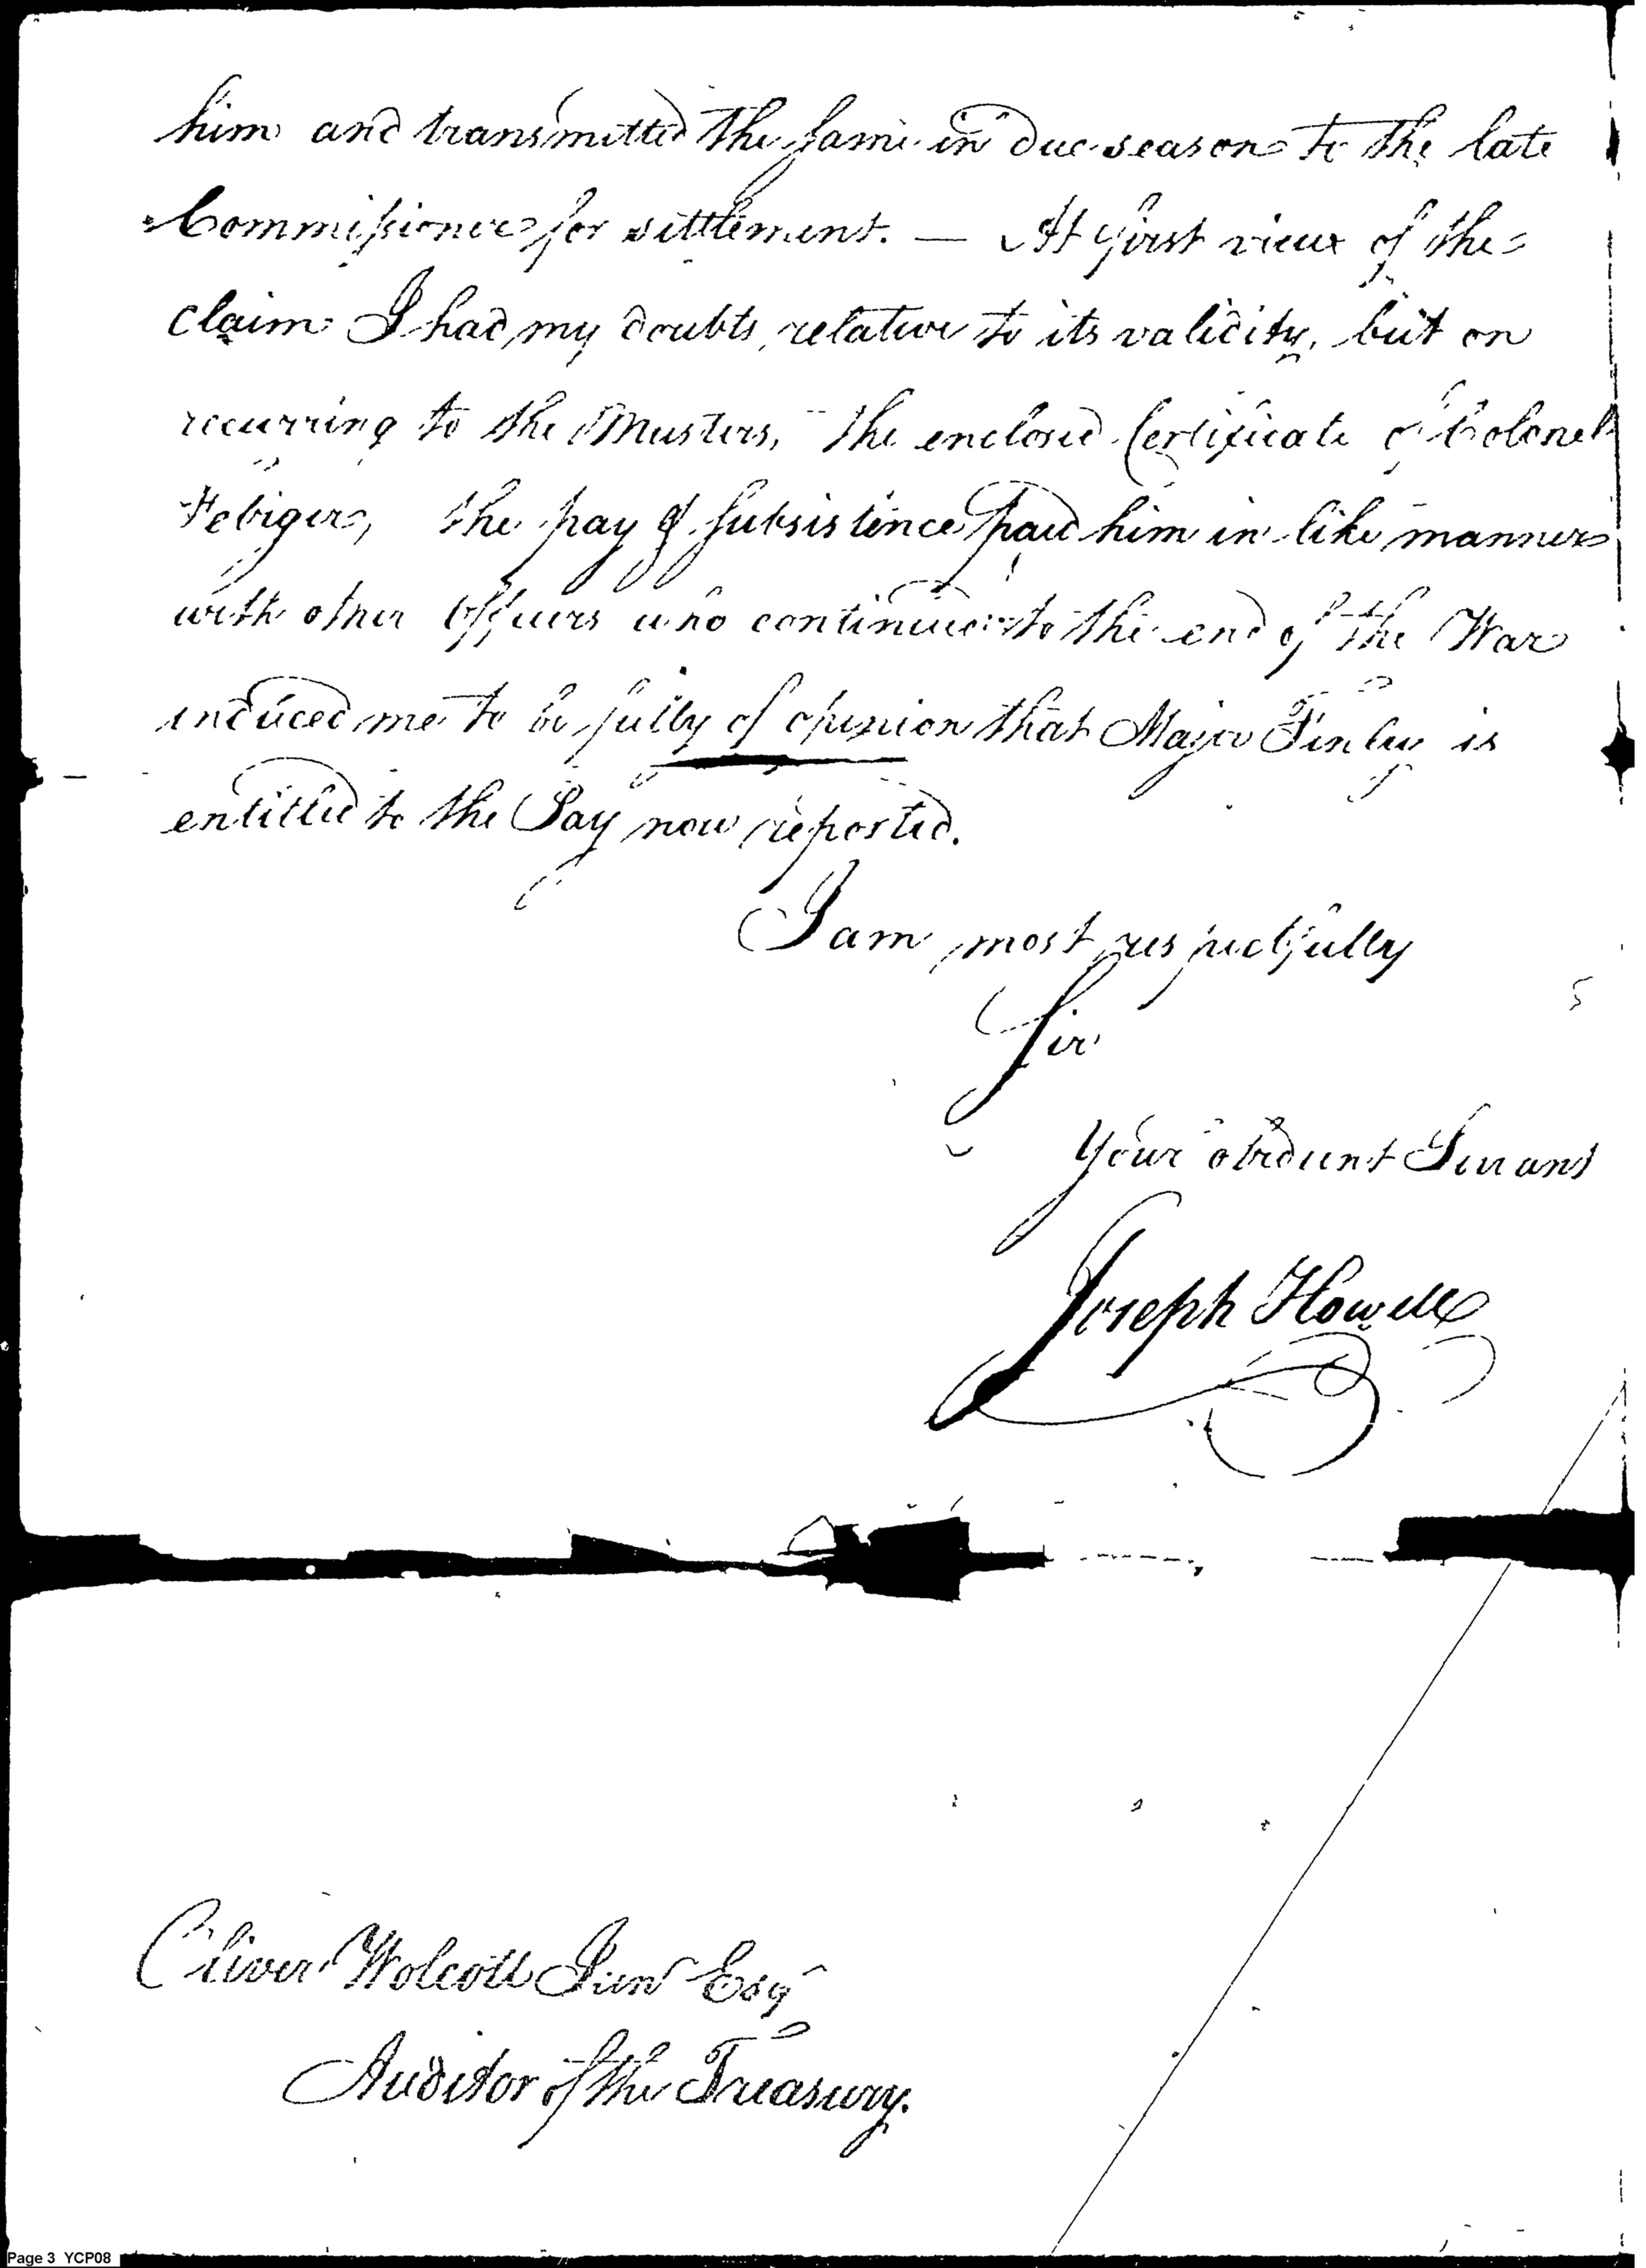 him and transmitted the same in due season to the late
Commissioner for settlement. — At first view of the
claim I had my doubts relative to its validity, but on
recurring to the Musters, the enclosed Certificate of Colonel
Febiger, the pay & subsistence paid him in like manner
with other Officers who continued to the end of the War
induced me to be fully of opinion that Major Finley is
entitled to the Pay now reported.
I am most respectfully
Sir
Your obedient Servant
Joseph Howell
Oliver Wolcott Junr Esqr
Auditor of the Treasury.
Page 3 YCP08